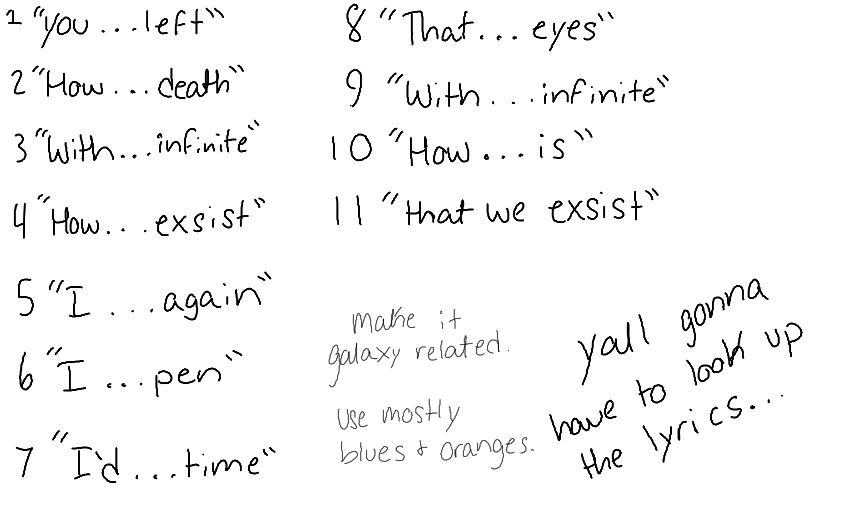 1 "you...left"
2 "How...death"
3 "With...infinite"
4 "How...exsist"
5 "I ...again"
6 "I ...pen"
7 "I'd...time"
8 "That...eyes"
9 "With...infinite"
10 "How...is"
11 "that we exsist"
make it
galaxy related.
use mostly
blues + oranges.
yall gonna
have to look up
the lyrics...